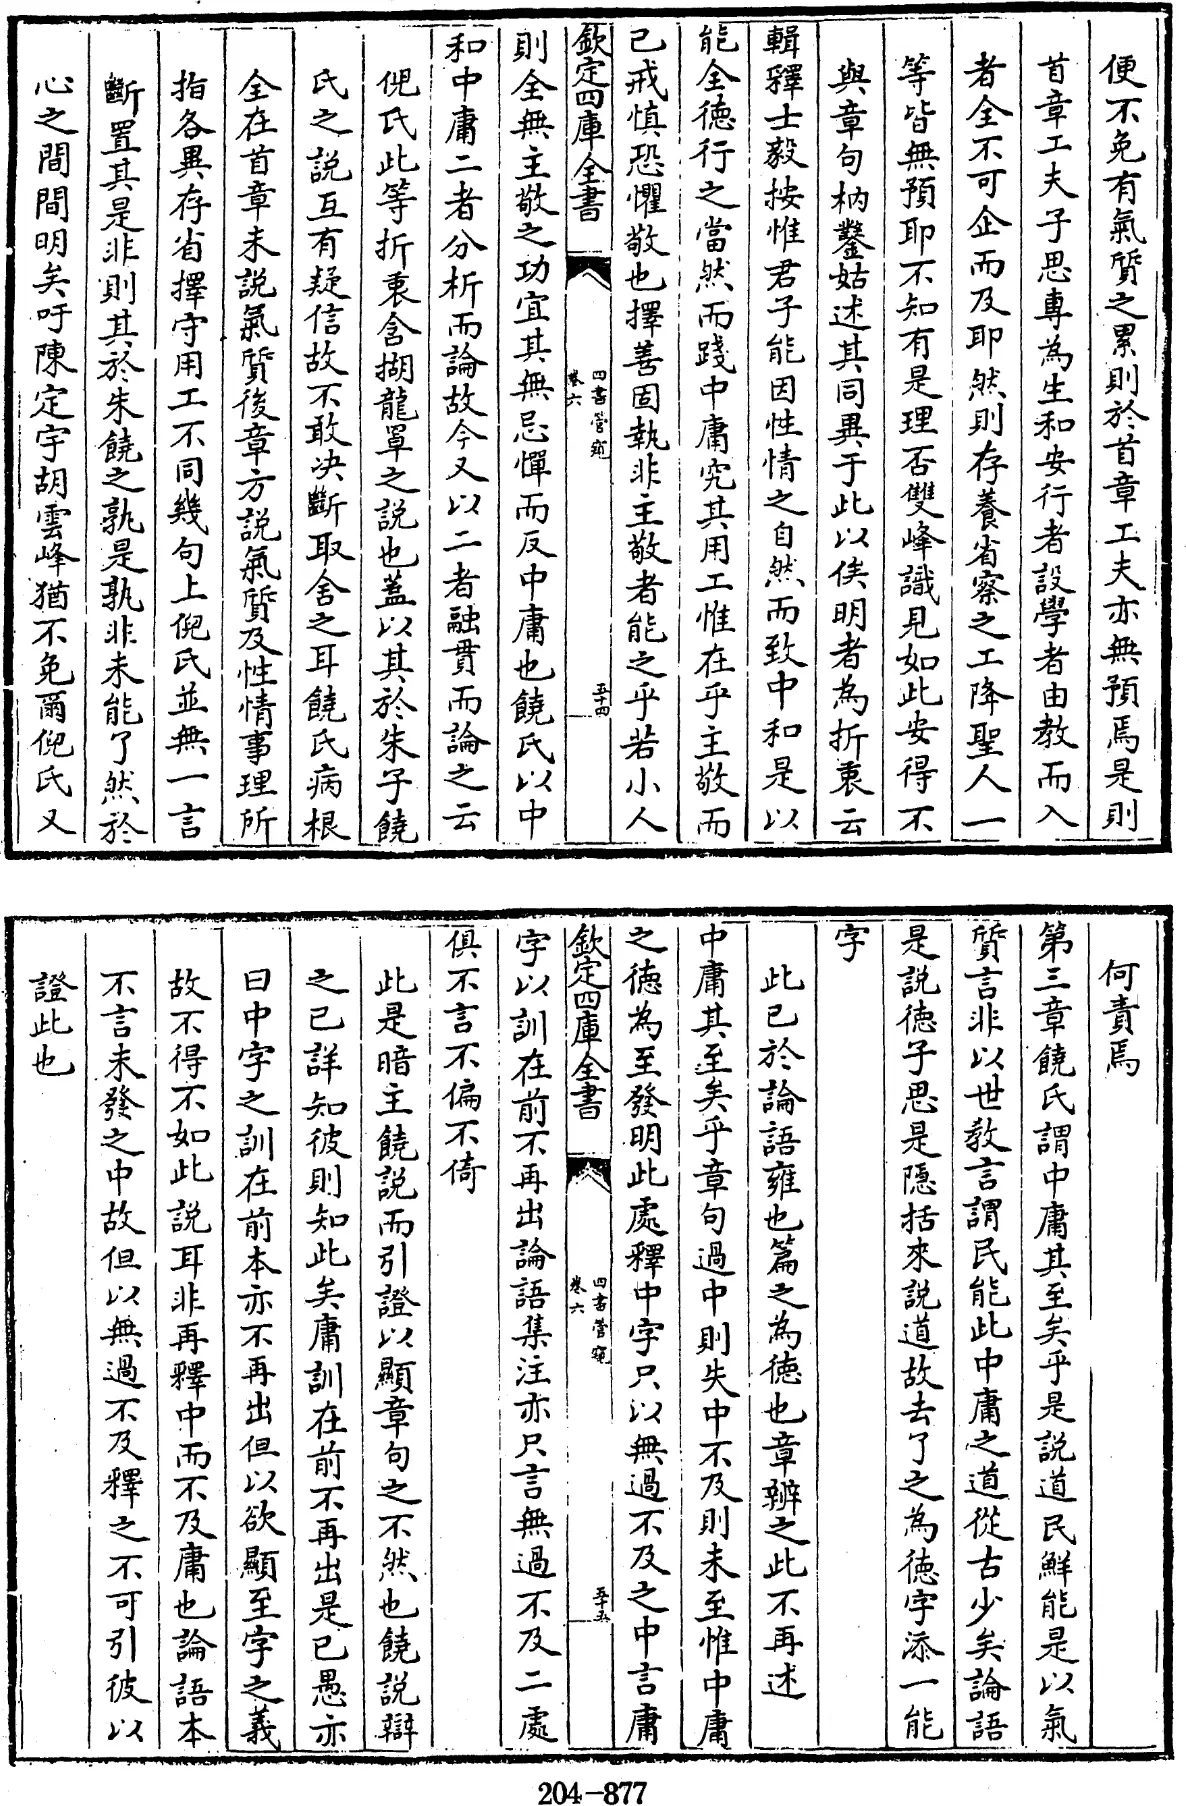 便不免有氣質之累則於首章工夫亦無預焉是則
首章工夫子思專為生和安行者設學者由教而入
者全不可企而及耶然則存養省察之工降聖人一
等皆無預耶不知有是理否雙峰識見如此安得不
與章句枘鑿姑述其同異于此以俟明者為折衷云
輯釋士毅按惟君子能因性情之自然而致中和是以
能全德行之當然而踐中庸究其用工惟在乎主敬而
已戒慎恐懼敬也擇善固執非主敬者能之乎若小人
欽定四庫全書
四書管窺
卷六
五十四
則全無主敬之功宜其無忌憚而反中庸也饒氏以中
和中庸二者分析而論故今又以二者融貫而論之云
倪氏此等折衷含糊龍罩之說也蓋以其於朱子饒
氏之說互有疑信故不敢决斷取舍之耳饒氏病根
全在首章未說氣質後章方說氣質及性情事理所
指各異存省擇守用工不同幾句上倪氏並無一言
斷置其是非則其於朱饒之孰是孰非未能了然於
心之間間明矣吁陳定宇胡雲峰猶不免爾倪氏又
何責焉
第三章饒氏謂中庸其至矣乎是說道民鮮能是以氣
質言非以世教言謂民能此中庸之道從古少矣論語
是說德子思是隱括來說道故去了之為德字添一能
字
此已於論語雍也篇之為德也章辨之此不再述
中庸其至矣乎章句過中則失中不及則未至惟中庸
之德為至發明此處釋中字只以無過不及之中言庸
欽定四庫全書
四書管窺
卷六
五十五
字以訓在前不再出論語集注亦只言無過不及二處
俱不言不偏不倚
此是暗主饒說而引證以顯章句之不然也饒說辯
之已詳知彼則知此矣庸訓在前不再出是已愚亦
曰中字之訓在前本亦不再出但以欲顯至字之義
故不得不如此說耳非再釋中而不及庸也論語本
不言未發之中故但以無過不及釋之不可引彼以
證此也
204-877